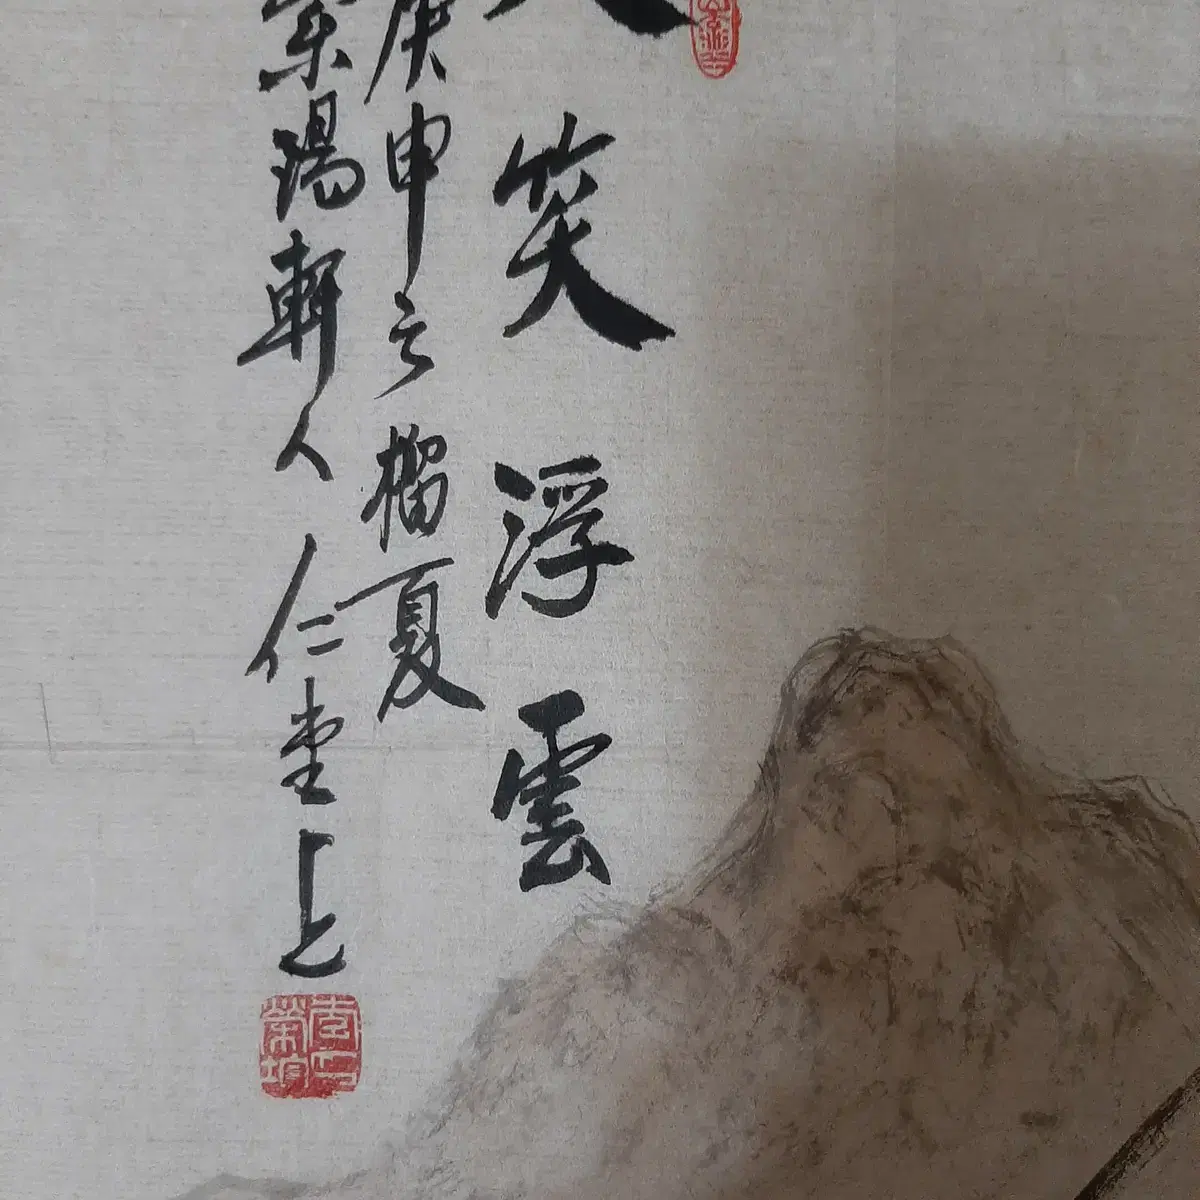 笑浮雲
庚申之榴夏
軒人仁堂上